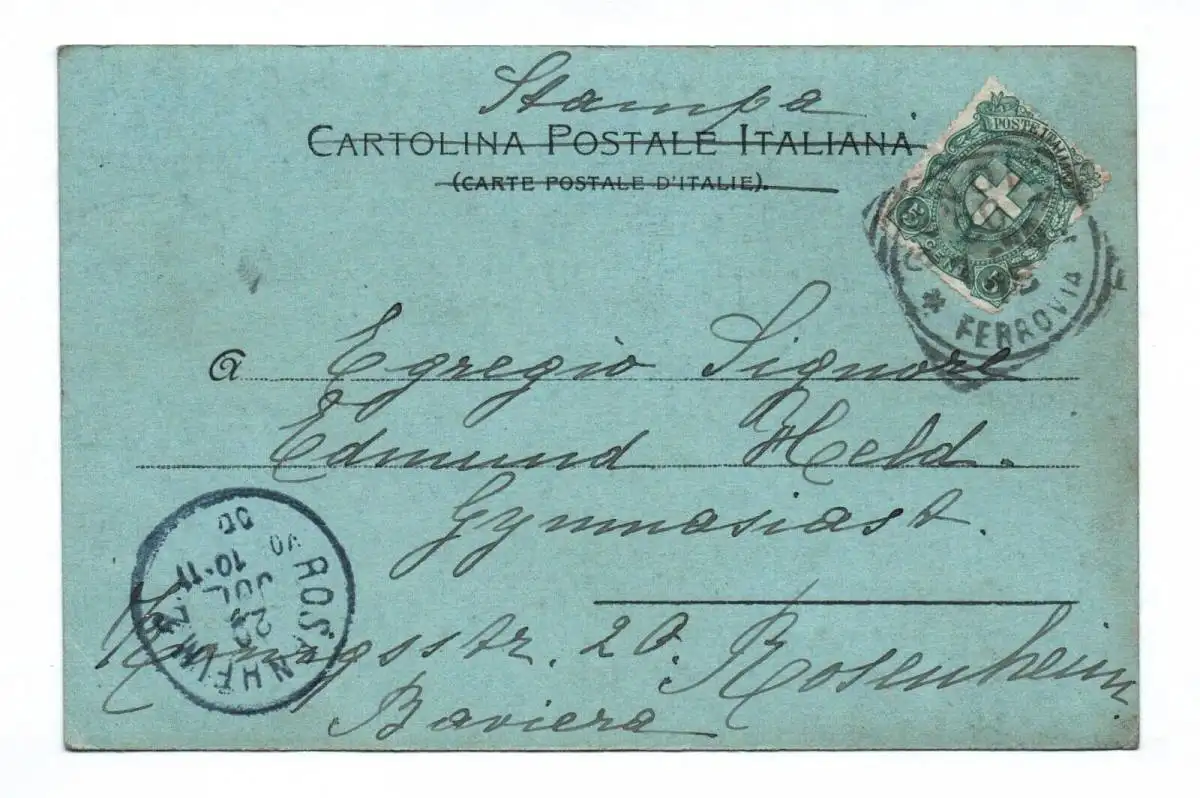 Stampa
CARTOLINA POSTALE ITALIANA
(CARTE POSTALE D'ITALIE).
POSTE ITALIANE
5 CENT. 5
* FERROVIA
a Egregio Signore
Edmund Held.
Gymnasiast.
ROSENHEIM
JUL
10-11
00
Königsstr. 20. Rosenheim
Baviera